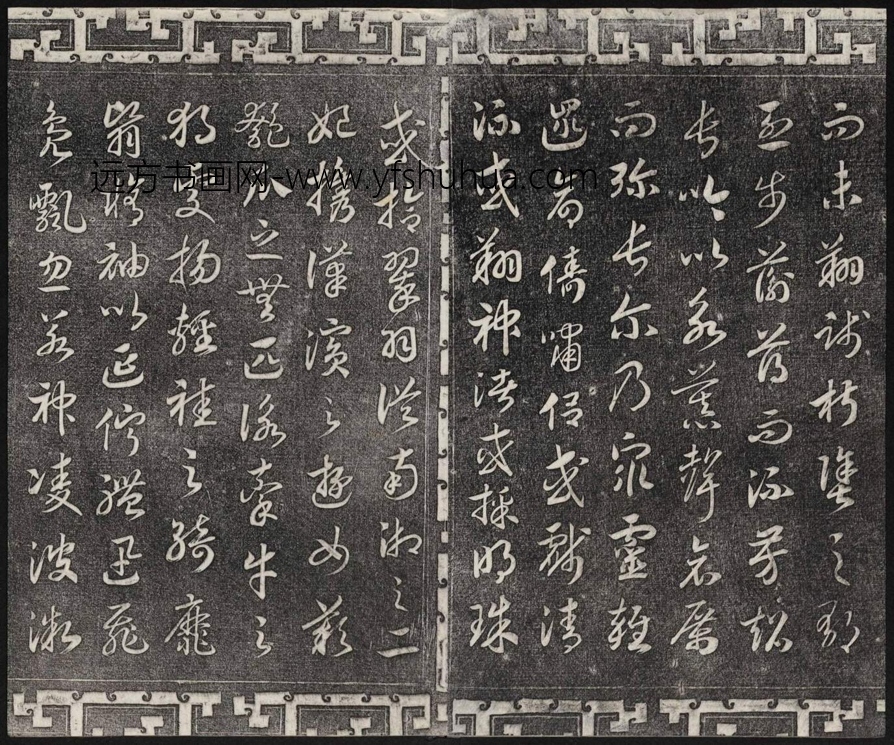 而未翔踐椒塗之郁
烈步蘅薄而流芳超
長吟以永慕聲哀厲
而彌長尔乃衆靈雜
遝命儔嘯侶或戲清
流或翔神渚或採明珠
或拾翠羽從南湘之二
妃攜漢濱之遊女歎
匏瓜之無匹詠牽牛之
獨處揚輕袿之綺靡
翳脩袖以延佇體迅飛
鳧飄忽若神凌波微
远方书画网-www.yfshuhua.com